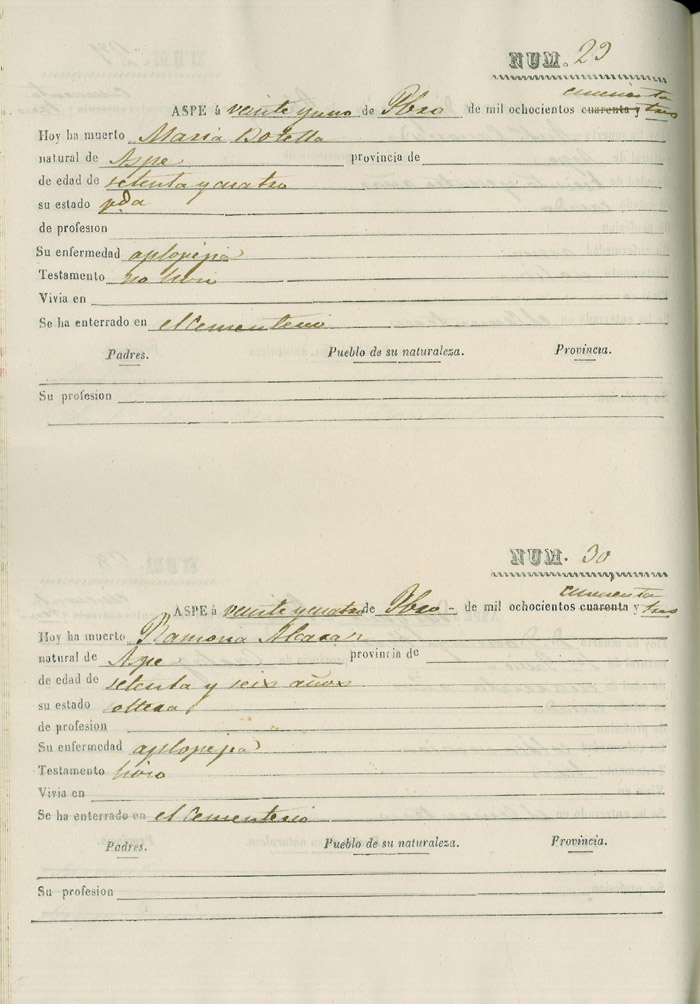 NUM. 29
cincuenta
ASPE á veinte y uno de Fbro de mil ochocientos cuarenta y tres
Hoy ha muerto Maria Botella
natural de Aspe provincia de
de edad de setenta y cuatro
su estado vda
de profesion
Su enfermedad aplopejia
Testamento no hiso
Vivia en
Se ha enterrado en el Cementerio
Padres. Pueblo de su naturaleza. Provincia.
Su profesion
NUM. 30
cincuenta
ASPE á veinte y cuatro de Fbro - de mil ochocientos cuarenta y tres
Hoy ha muerto Ramona Alcaraz
natural de Aspe provincia de
de edad de setenta y seis años
su estado soltera
de profesion
Su enfermedad aplopejia
Testamento hiso
Vivia en
Se ha enterrado en el Cementerio
Padres. Pueblo de su naturaleza. Provincia.
Su profesion